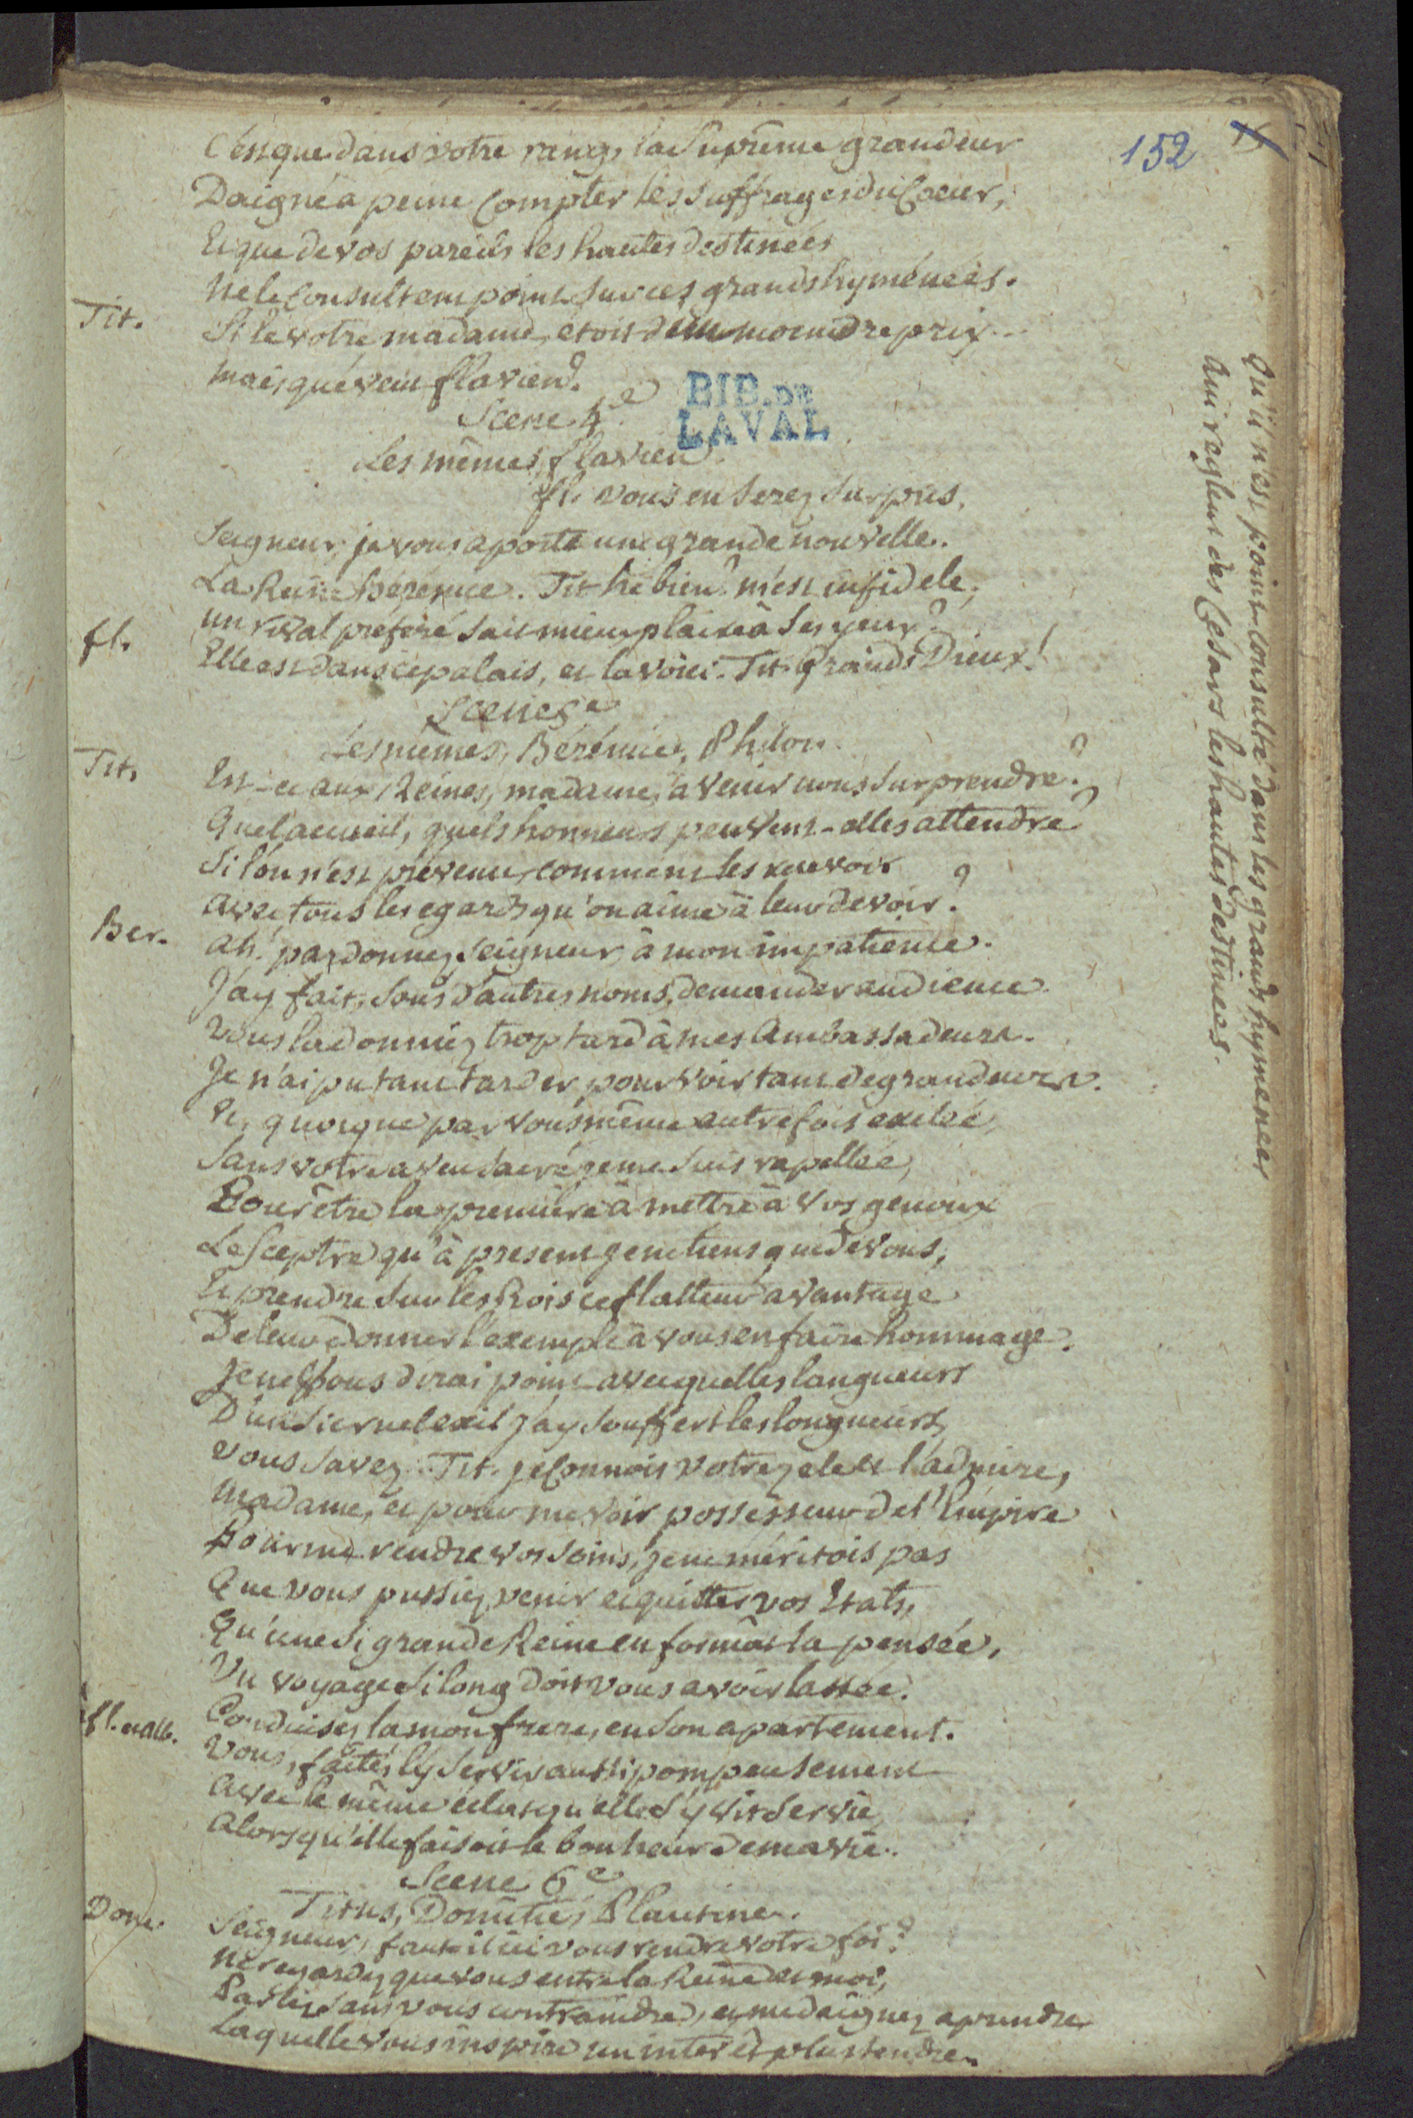 152
C'est que dans votre rang, la Suprême grandeur
Daigne à peine Compter les suffrages du Coeur,
Et que de vos pareils les hautes destinées
Ne le Consultent point sur ces grands hyménées.
Tit. Si le votre madame, etoit d'un moindre prix...
mais que veut flavien?
Scene 4e
Les mêmes, flavien.
BIB. DE
LAVAL
fl. vous en serez surpris,
Seigneur, je vous aporte une grande nouvelle.
La Reine Bérénice. Tit. hé bien? m'est infidele,
un rival preferé sait mieux plaire à ses yeux?
fl. Elle est dans ce palais, et la voici. Tit. Grands Dieux!
Scene 5e
Les mêmes, Bérénice, Philon.
Tit. Est-ce aux Reines, madame, à venir nous surprendre?
Quel accueil, quels honneurs peuvent-elles attendre
Si l'on n'est prévenu, comment les recevoir
avec tous les egards qu'on aime à leur devoir?
Ber. ah! pardonnez, Seigneur, à mon impatience.
J'ay fait, sous d'autres noms, demander audience
vous la donniez trop tard à mes Ambassadeurs.
Je n'ai pu tant tarder pour voir tant de grandeurs.
Et, quoique par vous même autrefois exilée,
Sans votre aveu sacré je me suis rapellée,
Pour être la premiere à mettre à vos genoux
Le Sceptre qu'à present je ne tiens que de vous,
Et prendre sur les Rois ce flatteur avantage
De leur donner l'exemple à vous en faire hommage.
Je ne Vous dirai point avec quelles langueurs
D'un si cruel exil j'ay souffert les longueurs,
vous savez... Tit. je Connois votre zele et l'admire,
madame, et pour me voir possesseur de l'Empire
Pour me rendre vos soins, je ne méritois pas
Que vous pussiez venir et quitter vos Etats,
Qu'une si grande Reine en formât la pensée,
Un voyage si long doit vous avoir lassée.
fl. et alb. Conduisez la mon frere, en son apartement.
Vous, faites l'y servir aussi pompeusement
Avec le même eclat qu'elle s'y vit servie,
Alors qu'elle faisoit le bonheur de ma vie.
Scene 6e
Titus, Domitie, Plautine.
Dom. Seigneur, faut-il ici vous rendre votre foi?
ne regardez que vous entre la Reine et moi,
Parlez sans vous contraindre, et me daignez aprendre
Laquelle vous inspire un interêt plus tendre.
Qu'il n'est point Consulté dans les grands hymenées
Qui reglent des Césars les hautes destinées.